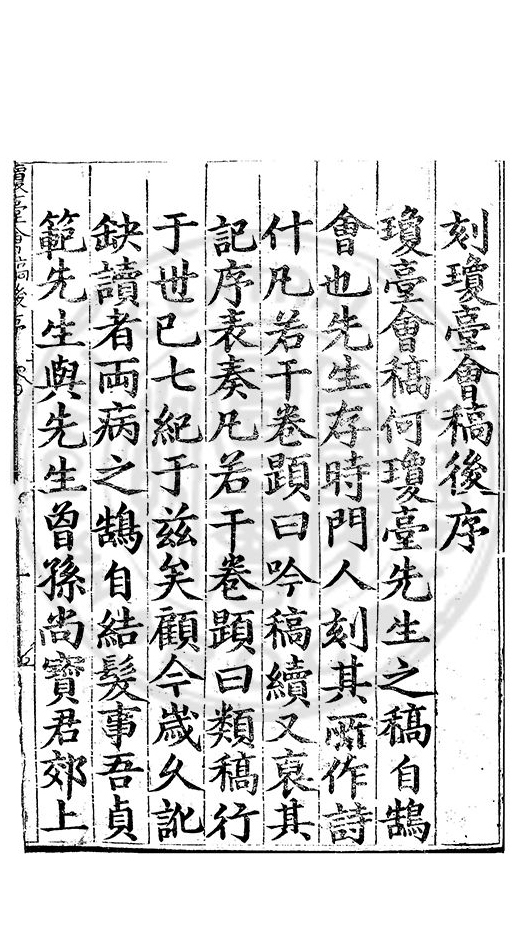 刻瓊臺會稿後序
瓊臺會稿何瓊臺先生之稿自鵠
會也先生存時門人刻其所作詩
什凡若干卷題曰吟稿續又裒其
記序表奏凡若干卷題曰類稿行
于世已七紀于茲矣顧今歲久訛
缺讀者両病之鵠自結髮事吾貞
範先生與先生曾孫尚寶君郊上
瓊臺會稿後序